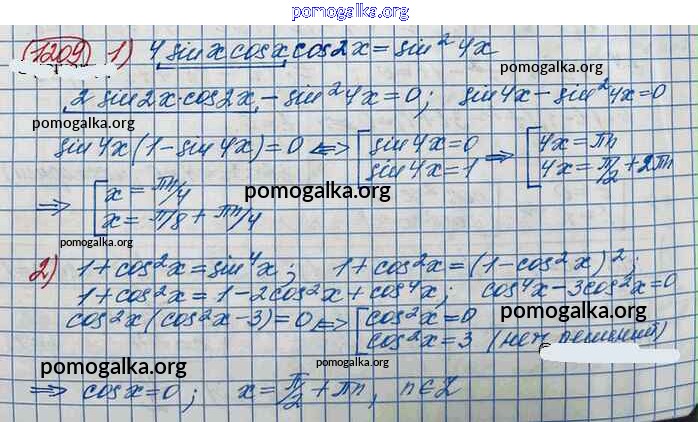 pomogalka.org
1209 1) 4 sin x cos x cos 2x = sin² 4x
pomogalka.org
2 sin 2x · cos 2x – sin² 4x = 0; sin 4x – sin² 4x = 0
pomogalka.org
sin 4x (1 – sin 4x) = 0 <=> [ sin 4x = 0 => [ 4x = πn
sin 4x = 1 4x = π/2 + 2πn
=> [ x = πn/4 pomogalka.org
x = π/8 + πn/4
pomogalka.org pomogalka.org
2) 1 + cos² x = sin⁴ x; 1 + cos² x = (1 – cos² x)²;
1 + cos² x = 1 – 2cos² x + cos⁴ x; cos⁴ x – 3cos² x = 0
cos² x (cos² x – 3) = 0 <=> [ cos² x = 0 pomogalka.org
cos² x = 3 (нет решений)
pomogalka.org pomogalka.org
=> cos x = 0; x = π/2 + πn, n ∈ Z
pomogalka.org